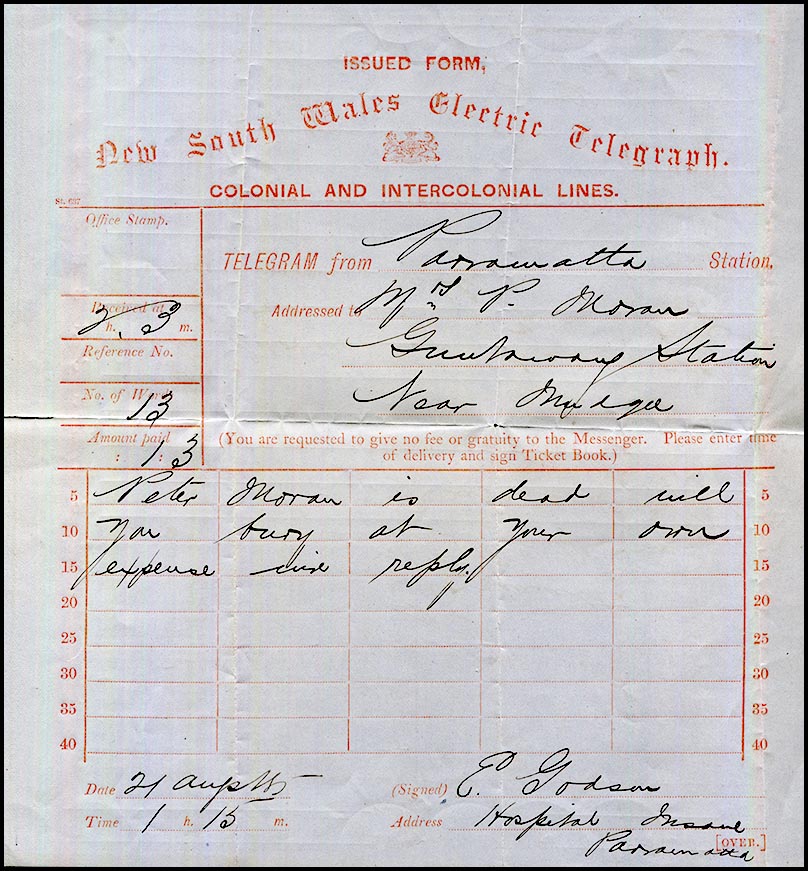 ISSUED FORM,
New South Wales Electric Telegraph.
COLONIAL AND INTERCOLONIAL LINES.
St. 637
Office Stamp.
TELEGRAM from Parramatta Station,
Received at
2 h. 3 m.
Addressed to Mrs P. Moran
Guntawang Station
Reference No.
Near Mudgee
No. of Words
13
Amount paid
: 1 : 3
(You are requested to give no fee or gratuity to the Messenger. Please enter time
of delivery and sign Ticket Book.)
5 Peter Moran is dead will 5
10 you bury at your own 10
15 expense wire reply. 15
20 20
25 25
30 30
35 35
40 40
Date 21 Augst
(Signed) E. Godson
Time 1 h. 15 m.
Address Hospital Insane
[OVER.]
Parramatta